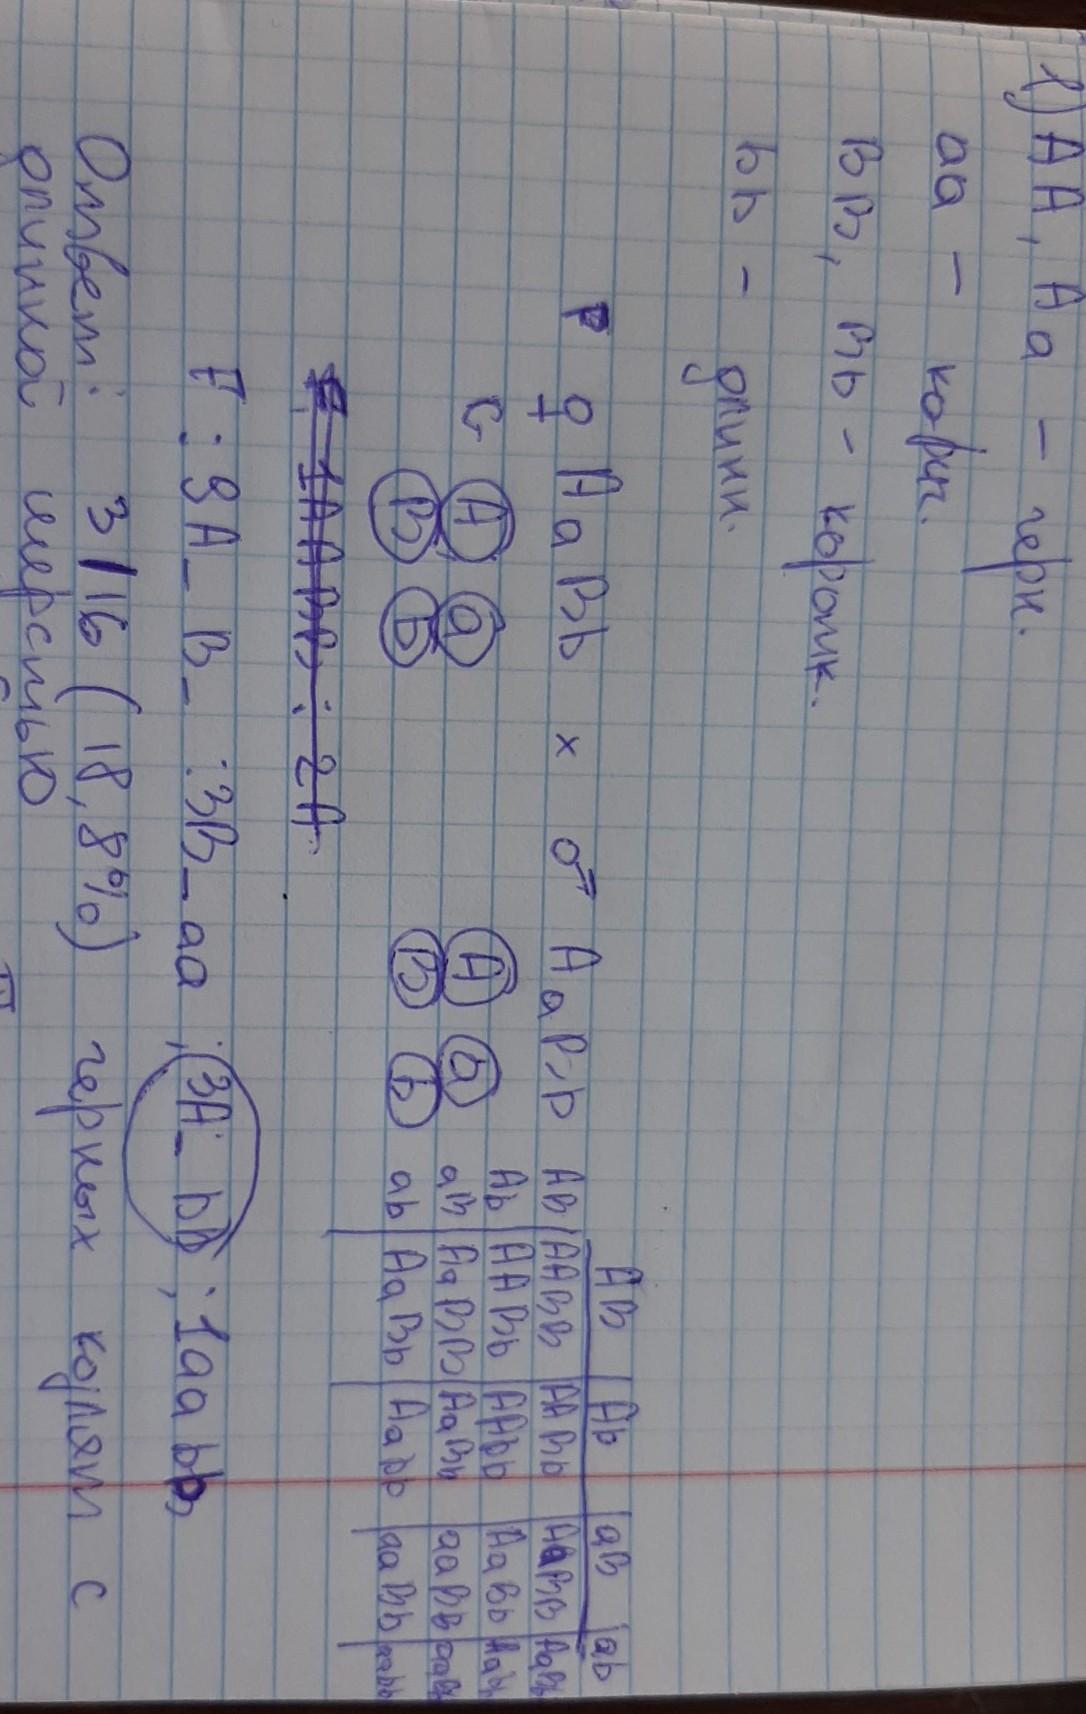 1) AA, Aa - черн.
aa - корич.
BB, Bb - коротк.
bb - длинн.
P ♀ AaBb x ♂ AaBb
G A a A a
B b B b
AB Ab aB ab
AB AABB AABb AaBB AaBb
Ab AABb AAbb AaBb Aabb
aB AaBB AaBb aaBB aaBb
ab AaBb Aabb aaBb aabb
F: 9A_B_ :3B_aa :3A_bb :1aabb
Ответ: 3/16 (18,8%) черных котят с
длинной шерстью